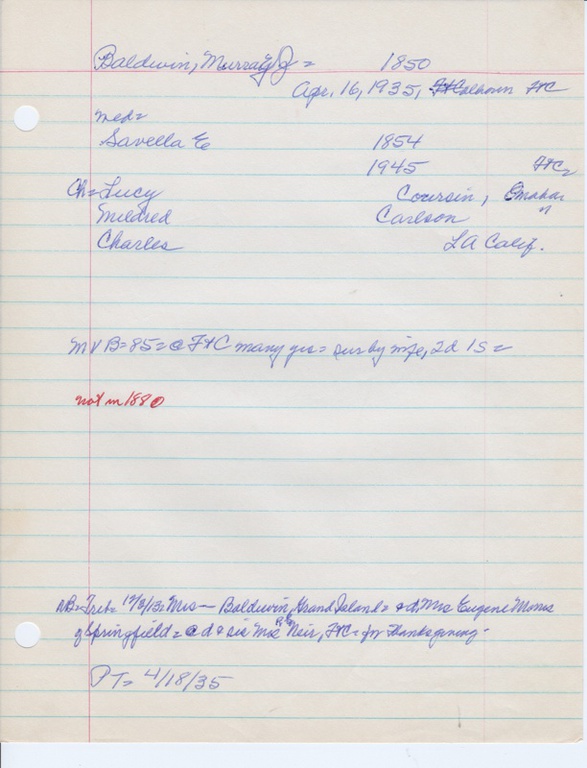 Baldwin, Murray J = 1850
Apr. 16, 1935, Ft Calhoun FtC
med=
Savella E 1854
1945 FtC
Ch= Lucy Coursin, Omaha
Mildred Carlson "
Charles LA Calif.
M V B=85= @ FtC many yrs= sur by wife, 2d 1S=
not in 1880
NB= Trib= 12/8/13= Mrs — Baldwin, Grand Island= & d, Mrs Eugene
of Springfield= @ d & sis Mrs Neir, FtC= for Thanksgiving-
PT= 4/18/35